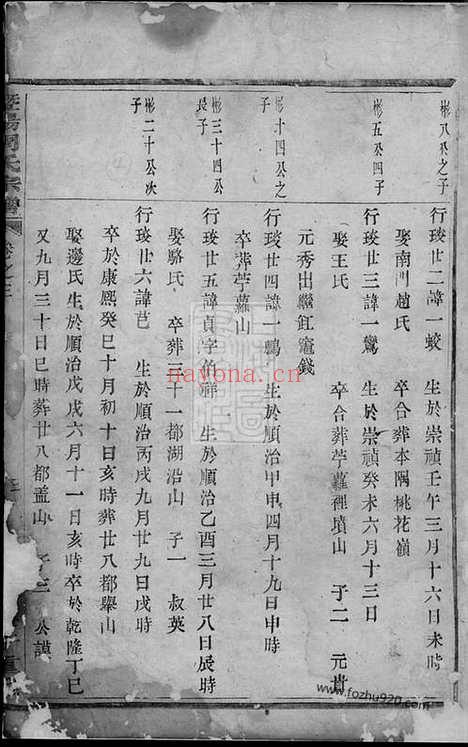 彬八公之子
行琰廿二諱一蛟 生於崇禎壬午三月十六日未時
娶南門趙氏 卒合葬本隅桃花嶺
彬五公四子
行琰廿三諱一鸞 生於崇禎癸未六月十三日
娶王氏 卒合葬苧蘿裡墳山 子二 元
元秀出繼釭竈錢
彬十四公之子
行琰廿四諱一鶚 生於順治甲申四月十九日申時
卒葬苧蘿山
彬三十四公長子
行琰廿五諱貞字 祥 生於順治乙酉三月廿八日辰時
娶駱氏 卒葬三十一都湖沿山 子一 叔英
彬二十公次子
行琰廿六諱芑 生於順治丙戌九月廿九日戌時
卒於康熙癸巳十月初十日亥時葬廿八都舉山
娶邊氏生於順治戊戌六月十一日亥時卒於乾隆丁巳
又九月三十日巳時葬廿八都孟山 子三 公謨
暨陽 氏宗譜
nayona.cn
www.fozhu920.com